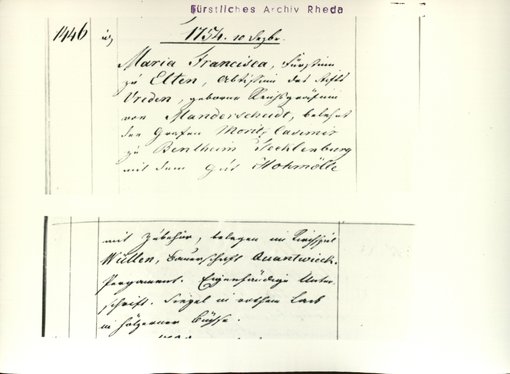 Fürstliches Archiv Rheda
1446
1754. 10 Dezbr.
Maria Francisca, Fürstinn
zu Elten, Abtissinn des Stifts
Vreden, geborne Reichsgräfinn
von Manderscheidt, belehnt
den Grafen Moritz Casimir
zu Bentheim Tecklenburg
mit dem Gut Hohmölle
mit Zubehör, belegen im Kirchspiel
Wüllen, Bauerschaft Quantwick.
Pergament. Eigenhändige Unter
schrift. Siegel in rothem Lack
in hölzerner Büchse.